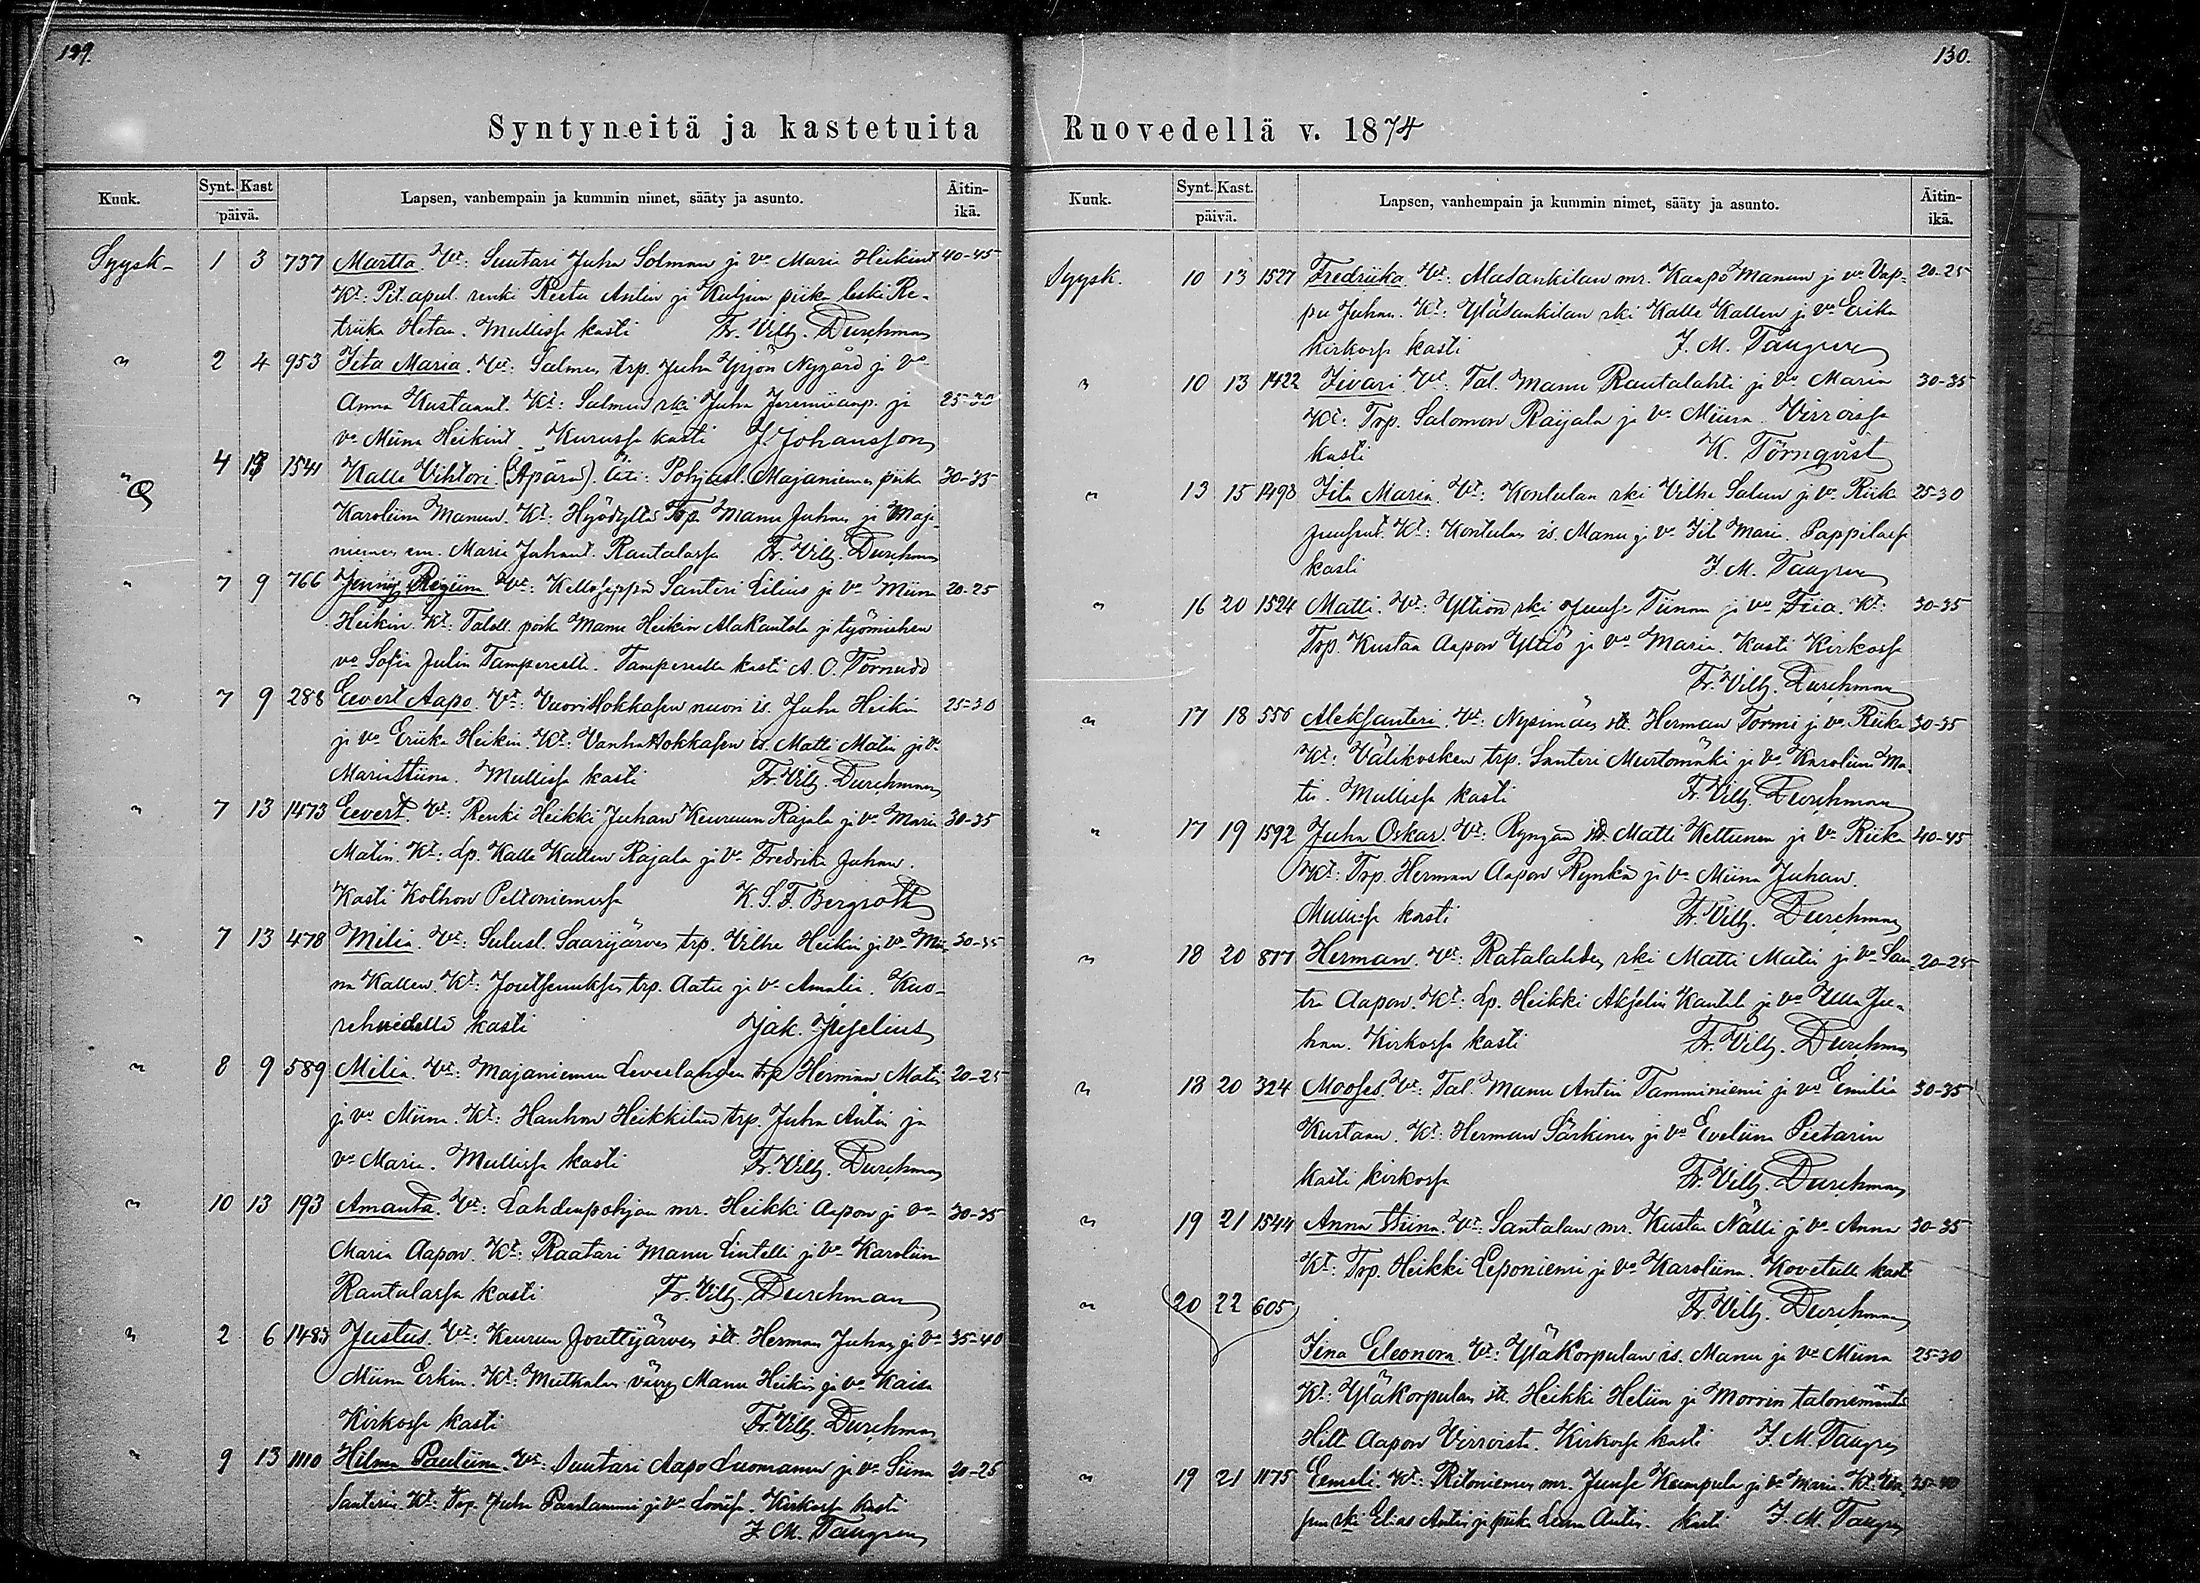 129.
Syntyneitä ja kastetuita
Kuuk. Synt. Kast päivä. Lapsen, vanhempain ja kummin nimet, sääty ja asunto. Äitin-ikä.
Syysk- 1 3 737 Martta. Vt: Suutari Juha Solman ja vo Maria Heikint 40-45
Kt: Pit. apul. renki Reetu Antin ja Kuljun piika leski Re-
triika Hetan. Mullissa kasti Fr. Vilh. Durchman
" 2 4 953 Iita Maria. Vt: Salmen trp. Juha Yrjön Nygård ja vo
Anna Kustaant. Kt: Salmen rki Juha Jeremiianp. ja 25-30
vo Miina Heikint. Kurussa kasti J. Johansson
" 4 13 1541 Kalle Vihtori. (Äpärä). Äiti: Pohjasl. Majaniemen piika 30-35
Karoliina Manun. Kt: Höödyltä Trp. Manu Juhan ja Maja-
niemen em. Maria Juhant. Rautalassa Fr. Vilh. Durchman
" 7 9 766 Jenny Regiina. Vt: Kelloseppä Santeri Lilius ja vo Miina 20-25
Heikin. Kt: Taloll. poika Manu Heikin AlaKautola ja työmiehen
vo Sofia Julin Tampereelle. Tampereella kasti A. O. Törnudd
" 7 9 288 Eevert Aapo. Vt: VuoriHokkasen nuori is. Juha Heikin 25-30
ja vo Eriika Heikin. Kt: VanhaHokkasen is. Matti Matin ja vo
MariaStiina. Mullissa kasti Fr. Vilh. Durchman
" 7 13 1473 Eevert. Vt: Renki Heikki Juhan Keuruun Rajala ja vo Maria 30-35
Matin. Kt: Lp. Kalle Kallen Rajala ja vo Fredrika Juhan.
Kasti Kolhon Peltoniemessä K. S. F. Bergroth
" 7 13 478 Milia. Vt: Sulusl. Saarijärven trp. Vilhe Heikin ja vo Mii- 30-35
na Kallen. Kt: Joutsenuksen trp. Aatu ja vo Amalia. Kuo-
rehvedellä kasti Jak. Juselius
" 8 9 589 Milia. Vt: Majaniemen Leveelahden trp Herman Matin 20-25
ja vo Miina. Kt: Hanhon Heikkilän trp. Juha Antin ja
vo Maria. Mullissa kasti Fr. Vilh. Durchman
" 10 13 193 Amanta. Vt: Lahdenpohjan mr. Heikki Aapon ja vo 30-35
Maria Aapon. Kt: Raatari Manu Lintelli ja vo Karoliina
Rautalassa kasti Fr. Vilh. Durchman
" 2 6 1483 Justus. Vt: Keuruun Jouttijärven itt. Herman Juhan ja vo 35-40
Miina Erkin. Kt: Mutkalan vävy Manu Heikin ja vo Kaisa
Kirkossa kasti Fr. Vilh. Durchman
" 9 13 1110 Hilma Pauliina. Vt: Suutari Aapo Luomanen ja vo Siina 20-25
Santerin. Kt: Trp. Juha Paarlammi ja vo Lovisa. Kirkossa kasti
J. M. Taugren
130.
Ruovedellä v. 1874
Kuuk. Synt. Kast. päivä. Lapsen, vanhempain ja kummin nimet, sääty ja asunto. Äitin-ikä.
Syysk. 10 13 1527 Fredriika. Vt: Alasankilan mr. Kaapo Manun ja vo Vap- 20-25
pu Juhan. Kt: Yläsankilan rki Kalle Kallen ja vo Erika
kirkossa kasti J. M. Taugren
" 10 13 1422 Iivari. Vt: Tal. Manu Rautalahti ja vo Maria 30-35
Kt: Trp. Salomon Raijala ja vo Miina. Virroissa
kasti K. Törnqvist
" 13 15 1498 Iita Maria. Vt: Kontulan rki Vilhe Salun ja vo Riika 25-30
Juusent. Kt: Kontulan is. Manu ja vo Iit Maria. Pappilassa
kasti J. M. Taugren
" 16 20 1524 Matti. Vt: Yltiön rki Juuse Tiinan ja vo Fiia. Kt: 30-35
Trp. Kustaa Aapon Yltiö ja vo Maria. Kasti Kirkossa
Fr. Vilh. Durchman
" 17 18 556 Aleksanteri. Vt: Nysimäen itt. Herman Tormi ja vo Riika 30-35
Kt: Välikosken trp. Santeri Murtomäki ja vo Karoliina Ma-
tin. Mullissa kasti Fr. Vilh. Durchman
" 17 19 1592 Juha Oskar. Vt: Ryngän itt. Matti Kettunen ja vo Riika 40-45
Kt: Trp. Herman Aapon Rynkä ja vo Miina Juhan.
Mullissa kasti Fr. Vilh. Durchman
" 18 20 877 Herman. Vt: Ratalahden rki Matti Matin ja vo San- 20-25
tra Aapon. Kt: Lp. Heikki Akselin Kautel ja vo Ulla Ju-
han. Kirkossa kasti Fr. Vilh. Durchman
" 18 20 324 Mooses. Vt: Tal. Manu Antin Tamminiemi ja vo Emilia 30-35
Kustaan. Kt: Herman Särkinen ja vo Eveliina Pietarin
kasti kirkossa Fr. Vilh. Durchman
" 19 21 1544 Anna Stiina. Vt: Santalan mr. Kusta Nälli ja vo Anna 30-35
Kt: Trp. Heikki Leponiemi ja vo Karoliina. Kovetulla kasti
" 20 22 605 Fr. Vilh. Durchman
Iina Eleonora. Vt: YläKorpulan is. Manu ja vo Miina 25-30
Kt: YläKorpulan itt. Heikki Heliin ja Morrin taloniemäntä
Hilta Aapon Virroista. Kirkossa kasti J. M. Taugren
" 19 21 1175 Eemeli. Vt: Ritoniemen mr. Juuse Kampula ja vo Maria. Kt: 35-40
rki Elias Antin ja piika Leena Antin. kasti J. M. Taugren